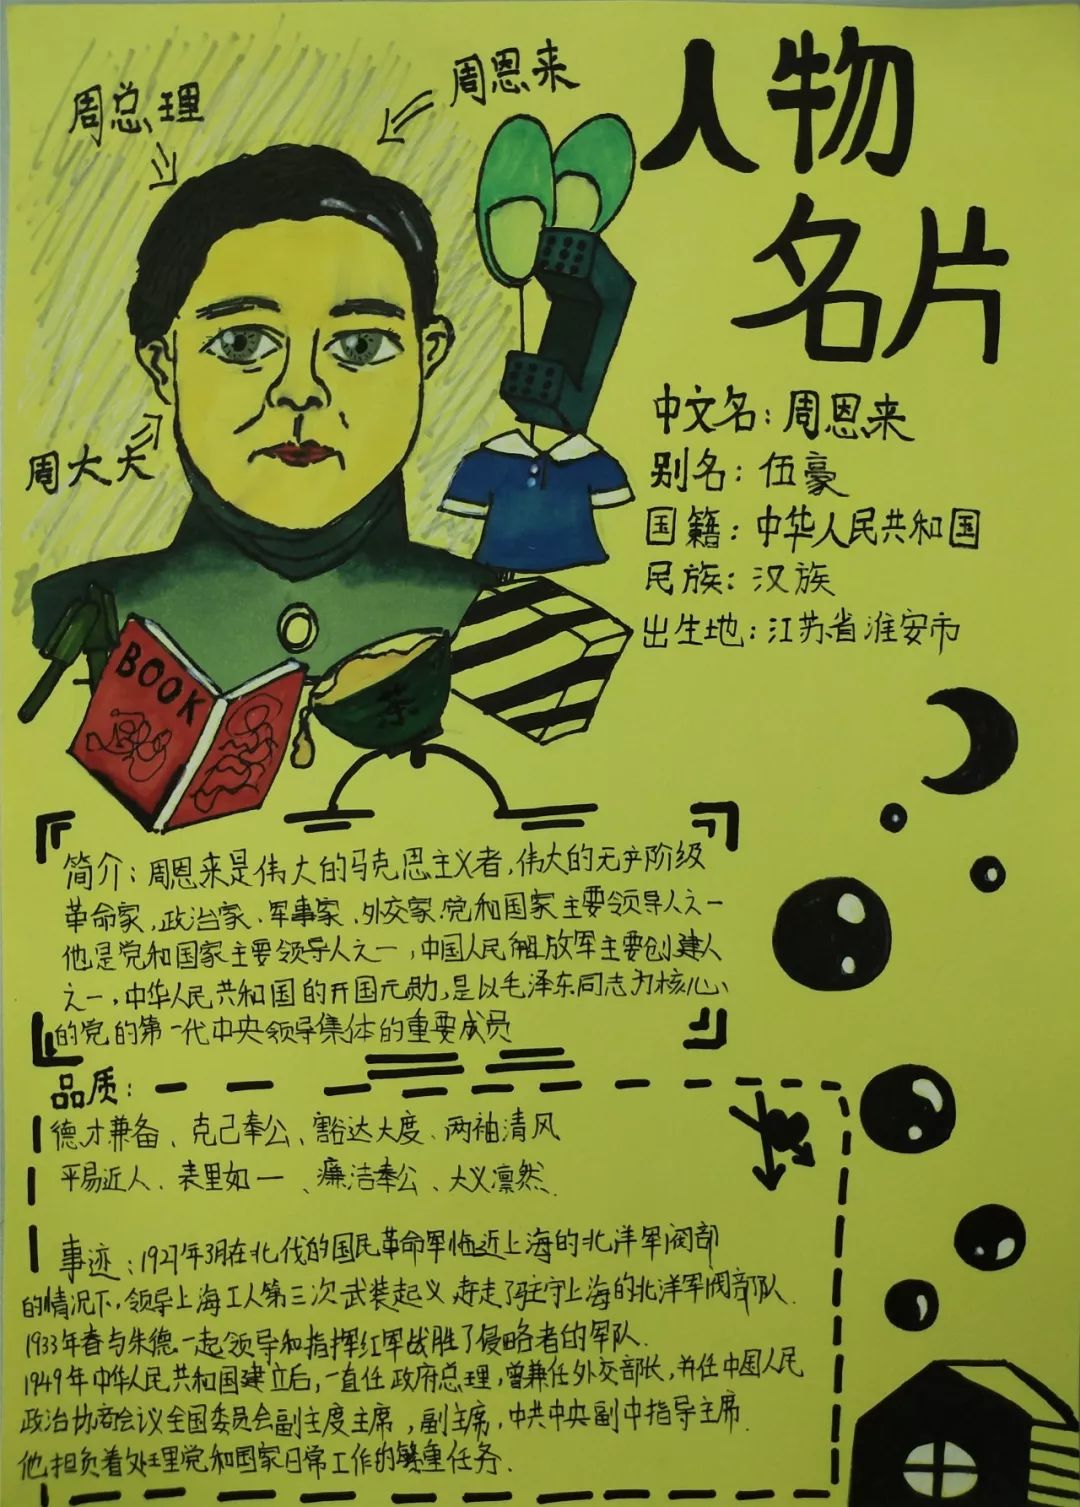 人物
名片
周总理
周恩来
周大夫
中文名：周恩来
别名：伍豪
国籍：中华人民共和国
民族：汉族
出生地：江苏省淮安市
BOOK
茶
简介：周恩来是伟大的马克思主义者，伟大的无产阶级
革命家、政治家、军事家、外交家，党和国家主要领导人之一
他是党和国家主要领导人之一，中国人民解放军主要创建人
之一，中华人民共和国的开国元勋，是以毛泽东同志为核心
的党的第一代中央领导集体的重要成员
品质：
德才兼备、克己奉公、豁达大度、两袖清风
平易近人、表里如一、廉洁奉公、大义凛然.
事迹：1927年3月在北伐的国民革命军临近上海的北洋军阀部
的情况下，领导上海工人第三次武装起义，赶走了驻守上海的北洋军阀部队.
1933年春与朱德一起领导和指挥红军战胜了侵略者的军队.
1949年中华人民共和国建立后，一直任政府总理，曾兼任外交部长，并任中国人民
政治协商会议全国委员会副主度主席，副主席，中共中央副中指导主席.
他担负着处理党和国家日常工作的繁重任务.